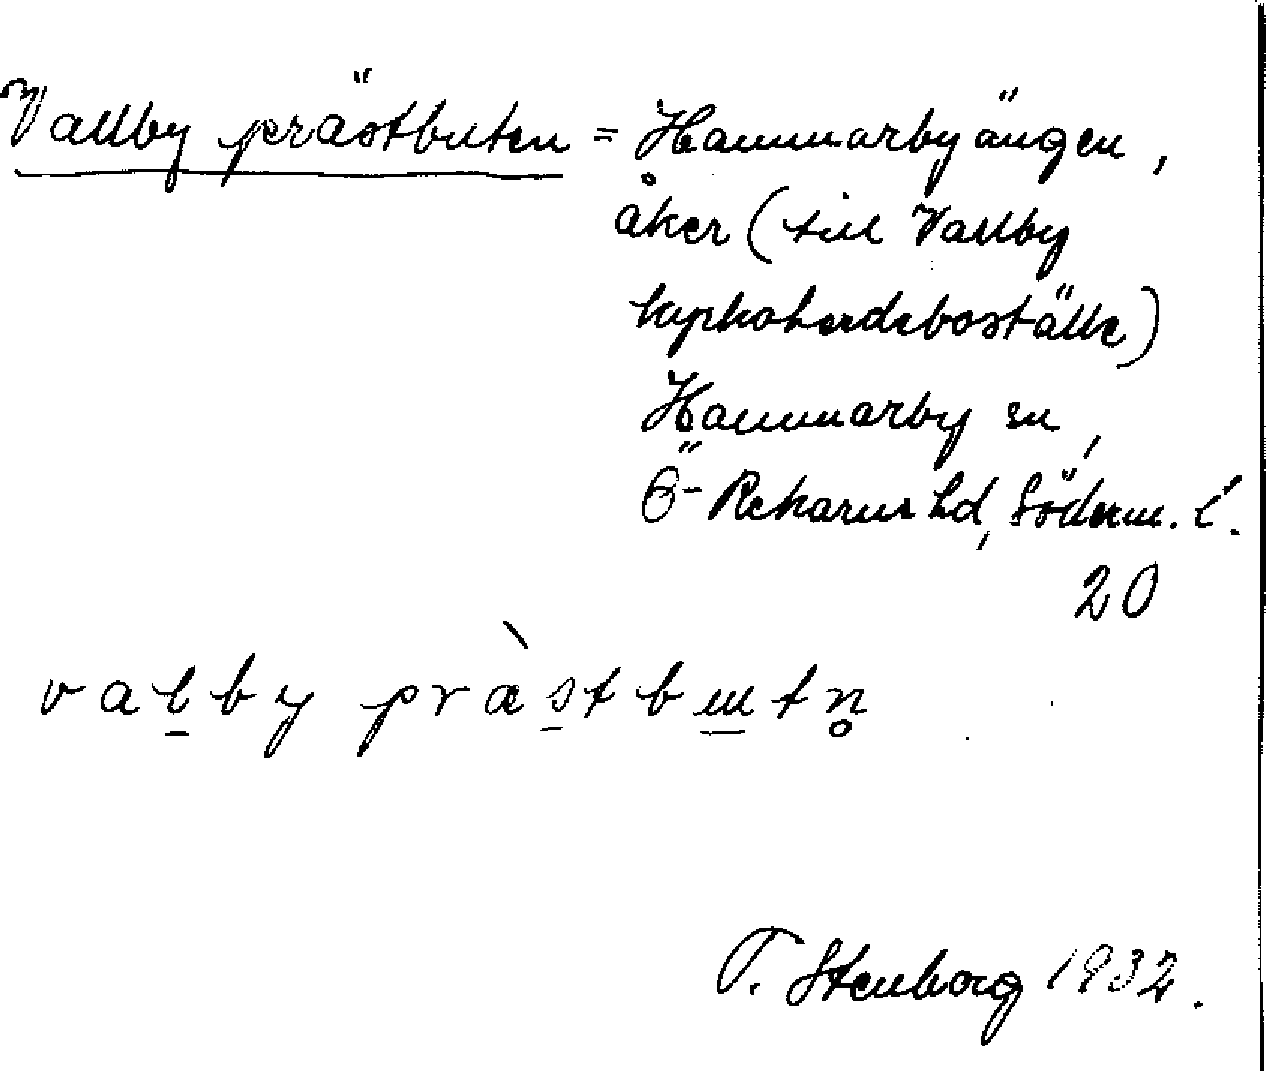 Vallby prästbiten = Hammarbyängen,
åker (till Vallby
kyrkoherdeboställe)
Hammarby sn,
Ö-Rekarne hd, Söderm. l.
20
valby præstbɯtn̥
T. Stenborg 1932.